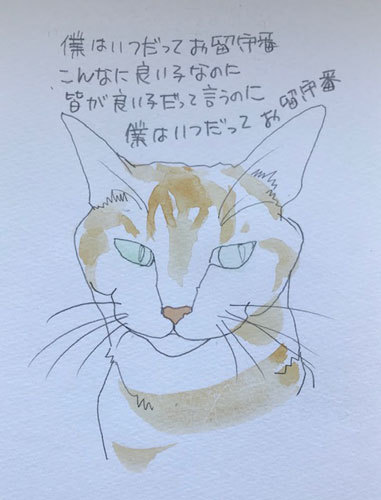 僕はいつだってお留守番
こんなに良い子なのに
皆が良い子だって言うのに
僕はいつだってお留守番